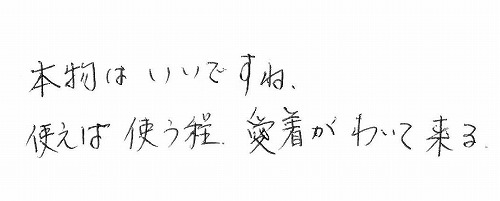 本物はいいですね、
使えば使う程、愛着がわいて来る.